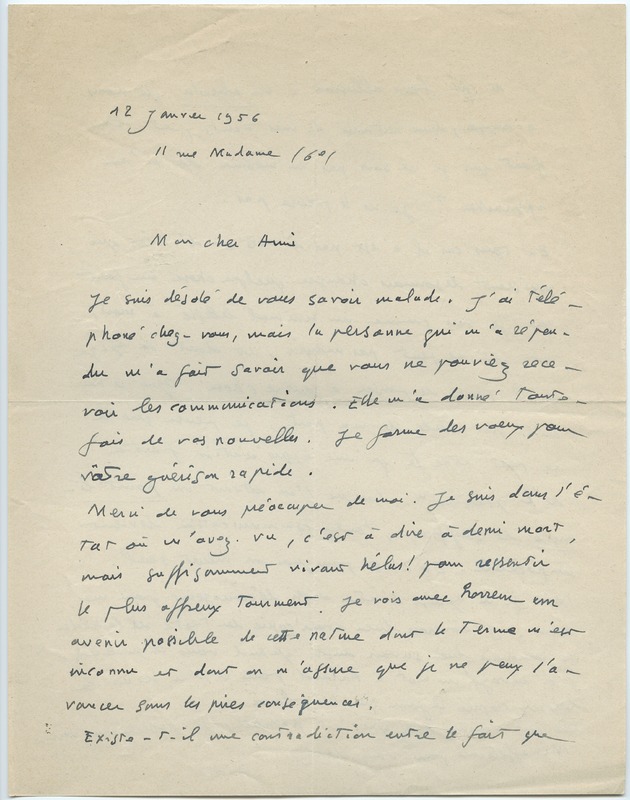 12 janvier 1956
11 rue Madame (6e)
Mon cher Ami
Je suis désolé de vous savoir malade. J'ai télé-
phoné chez-vous, mais la personne qui m'a répon-
du m'a fait savoir que vous ne pouviez rece-
voir les communications. Elle m'a donné toute-
fois de vos nouvelles. Je forme des voeux pour
vôtre guérison rapide.
Merci de vous préoccuper de moi. Je suis dans l'é-
tat où m'avez vu, c'est à dire à demi mort,
mais suffisamment vivant hélas! pour ressentir
le plus affreux tourment. Je vois avec horreur un
avenir possible de cette nature dont le terme m'est
inconnu et dont on m'assure que je ne peux l'a-
vancer sans les pires conséquences.
Existe-t-il une contradiction entre le fait que